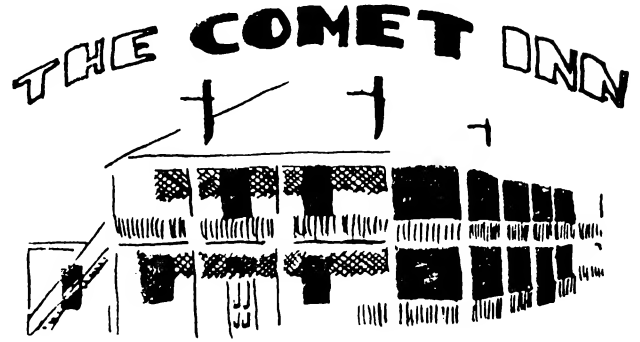 THE COMET INN